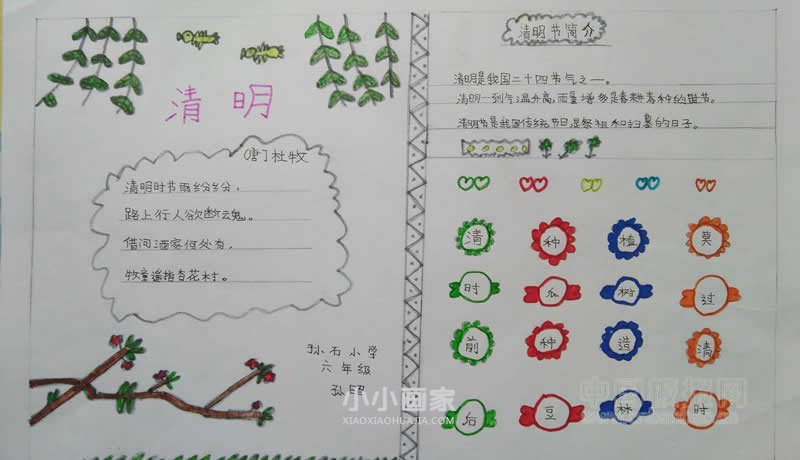 清明
(唐)杜牧
清明时节雨纷纷,
路上行人欲断魂。
借问酒家何处有,
牧童遥指杏花村。
孙石小学
六年级
孙熙
小小画家
XIAOXIAOHUAJIA.COM
清明节简介
清明是我国二十四节气之一。
清明一到气温升高,雨量增多是春耕春种的时节。
清明节是我国传统节日,是祭祖和扫墓的日子。
清 种 植 莫
时 瓜 树 过
前 种 造 清
后 豆 林 时